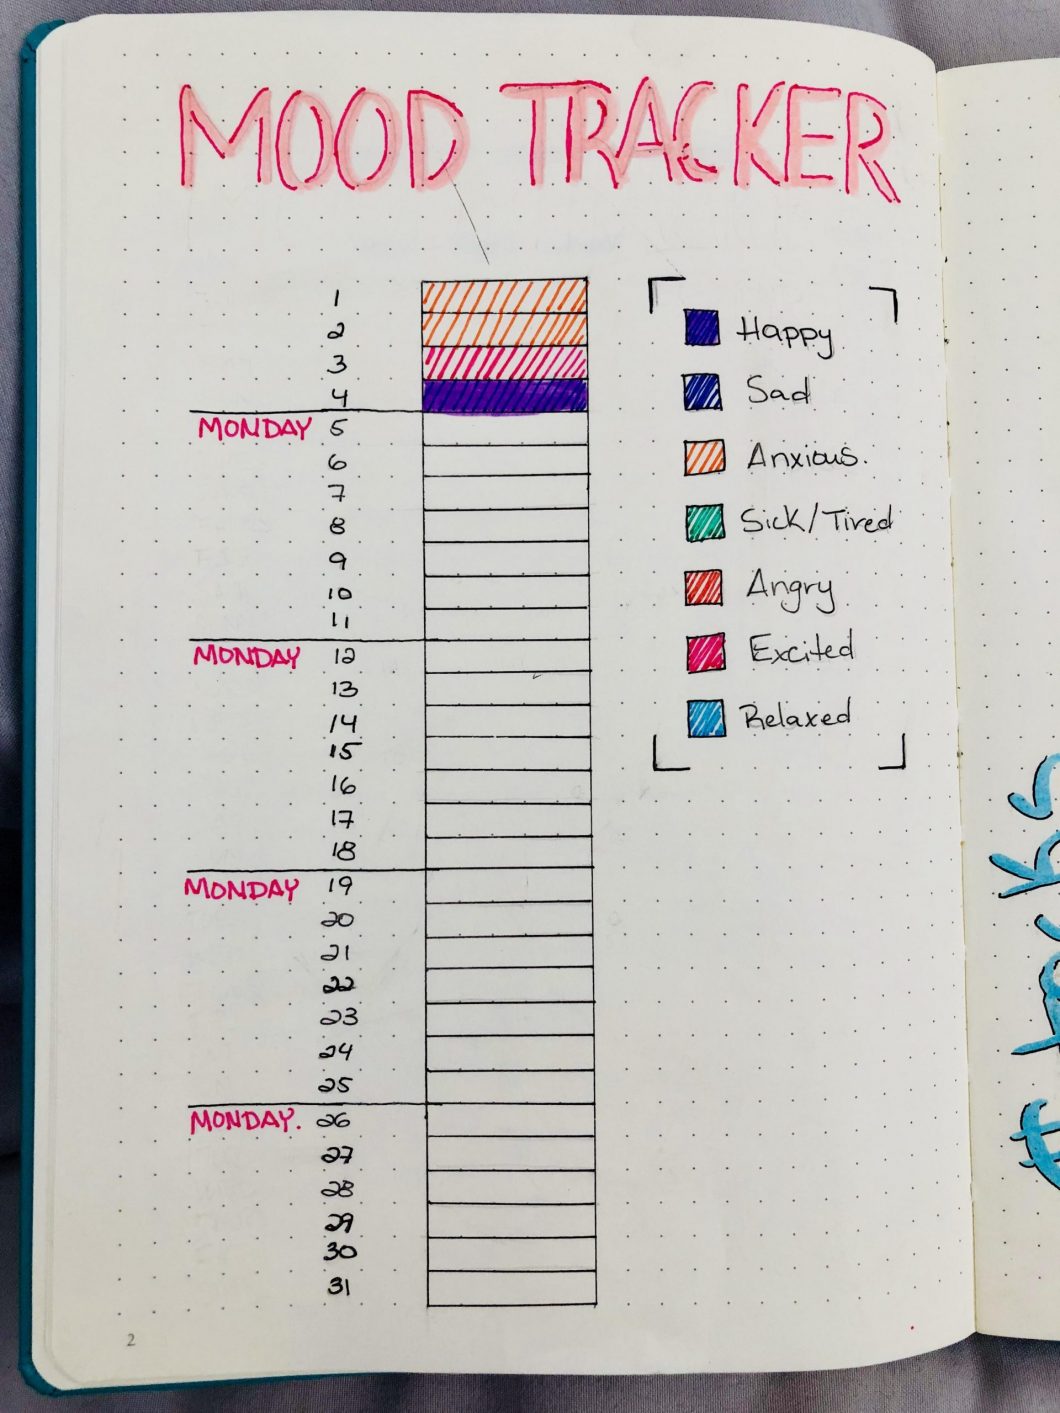 MOOD TRACKER
1
2
3
4
MONDAY 5
6
7
8
9
10
11
MONDAY 12
13
14
15
16
17
18
MONDAY 19
20
21
22
23
24
25
MONDAY. 26
27
28
29
30
31
Happy
Sad
Anxious.
Sick/Tired
Angry
Excited
Relaxed
2